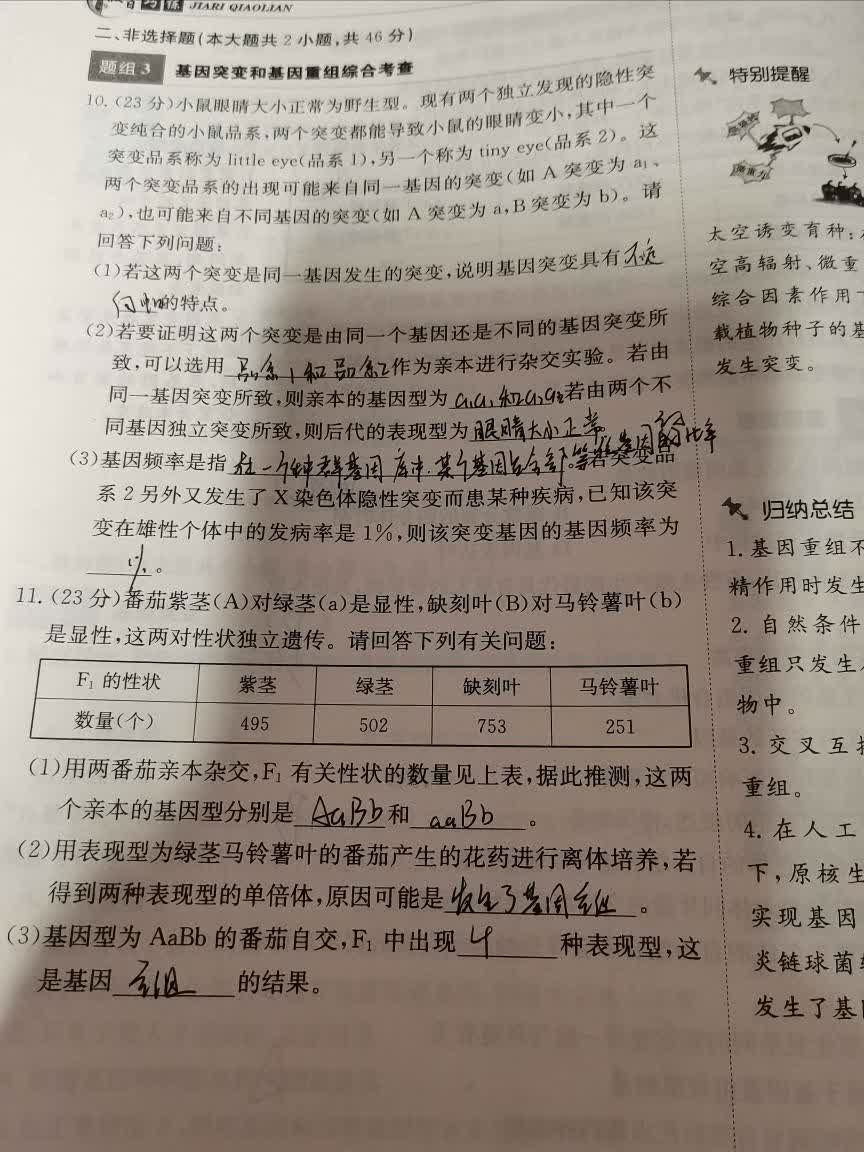 JIARI QIAOLIAN
二、非选择题(本大题共2小题,共46分)
题组3 基因突变和基因重组综合考查
10.(23分)小鼠眼睛大小正常为野生型。现有两个独立发现的隐性突
变纯合的小鼠品系,两个突变都能导致小鼠的眼睛变小,其中一个
突变品系称为little eye(品系1),另一个称为tiny eye(品系2)。这
两个突变品系的出现可能来自同一基因的突变(如A突变为a₁、
a₂),也可能来自不同基因的突变(如A突变为a,B突变为b)。请
回答下列问题:
(1)若这两个突变是同一基因发生的突变,说明基因突变具有不定
向性的特点。
(2)若要证明这两个突变是由同一个基因还是不同的基因突变所
致,可以选用品系1和品系2作为亲本进行杂交实验。若由
同一基因突变所致,则亲本的基因型为a₁a₁和a₂a₂若由两个不
同基因独立突变所致,则后代的表现型为眼睛大小正常。
(3)基因频率是指在一个种群基因库中.某个基因占全部等位基因的比率。若突变品
系2另外又发生了X染色体隐性突变而患某种疾病,已知该突
变在雄性个体中的发病率是1%,则该突变基因的基因频率为
1%。
11.(23分)番茄紫茎(A)对绿茎(a)是显性,缺刻叶(B)对马铃薯叶(b)
是显性,这两对性状独立遗传。请回答下列有关问题:
F₁的性状 紫茎 绿茎 缺刻叶 马铃薯叶
数量(个) 495 502 753 251
(1)用两番茄亲本杂交,F₁有关性状的数量见上表,据此推测,这两
个亲本的基因型分别是AaBb和aaBb。
(2)用表现型为绿茎马铃薯叶的番茄产生的花药进行离体培养,若
得到两种表现型的单倍体,原因可能是发生了基因重组。
(3)基因型为AaBb的番茄自交,F₁中出现4种表现型,这
是基因重组的结果。
特别提醒
太空诱变育种:
空高辐射、微重
综合因素作用下
载植物种子的基
发生突变。
归纳总结
1.基因重组不
精作用时发生
2.自然条件
重组只发生
物中。
3.交叉互换
重组。
4.在人工
下,原核生
实现基因
炎链球菌
发生了基